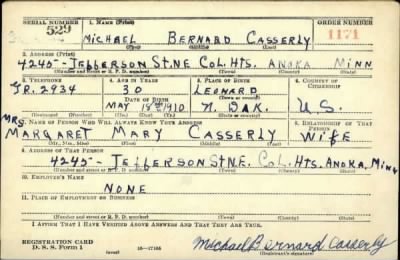 SERIAL NUMBER 1. NAME (Print) ORDER NUMBER
529 MICHAEL BERNARD CASSERLY 1171
(First) (Middle) (Last)
2. ADDRESS (Print)
4245 - JEFFERSON ST. NE COL. HTS. ANOKA MINN
(Number and street or R. F. D. number) (Town) (County) (State)
3. TELEPHONE 4. AGE IN YEARS 5. PLACE OF BIRTH 6. COUNTRY OF CITIZENSHIP
JR. 2934 30 LEONARD
DATE OF BIRTH (Town or county)
MAY 18TH 1910 N. DAK. U.S.
(Exchange) (Number) (Mo.) (Day) (Yr.) (State or country)
7. NAME OF PERSON WHO WILL ALWAYS KNOW YOUR ADDRESS 8. RELATIONSHIP OF THAT PERSON
MRS. MARGARET MARY CASSERLY WIFE
(Mr., Mrs., Miss) (First) (Middle) (Last)
9. ADDRESS OF THAT PERSON
4245 - JEFFERSON ST. N.E. COL. HTS. ANOKA, MINN
(Number and street or R. F. D. number) (Town) (County) (State)
10. EMPLOYER'S NAME
NONE
11. PLACE OF EMPLOYMENT OR BUSINESS
(Number and street or R. F. D. number) (Town) (County) (State)
I AFFIRM THAT I HAVE VERIFIED ABOVE ANSWERS AND THAT THEY ARE TRUE.
REGISTRATION CARD
D. S. S. Form 1 (over) 16-17105 Michael Bernard Casserly
(Registrant's signature)